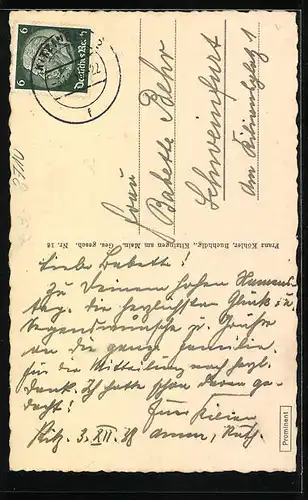 6
6
Deutsches Reich
22
f
Frau
Babette Behr
Schweinfurt
Am Kilianusberg 1
Franz Köhler, Buchhdlg., Kitzingen am Main. Ges. gesch. Nr. 18
Liebe Babette!
Zu Deinem hohen Namens-
tag. die herzlichsten Glück- u.
Segenswünsche u. Grüße
an die ganze Familie.
für die Mitteilung auch herzl.
Dank. Ich hatte schon daran ge-
dacht!
Kitz. 3. XII. 38
Prominent